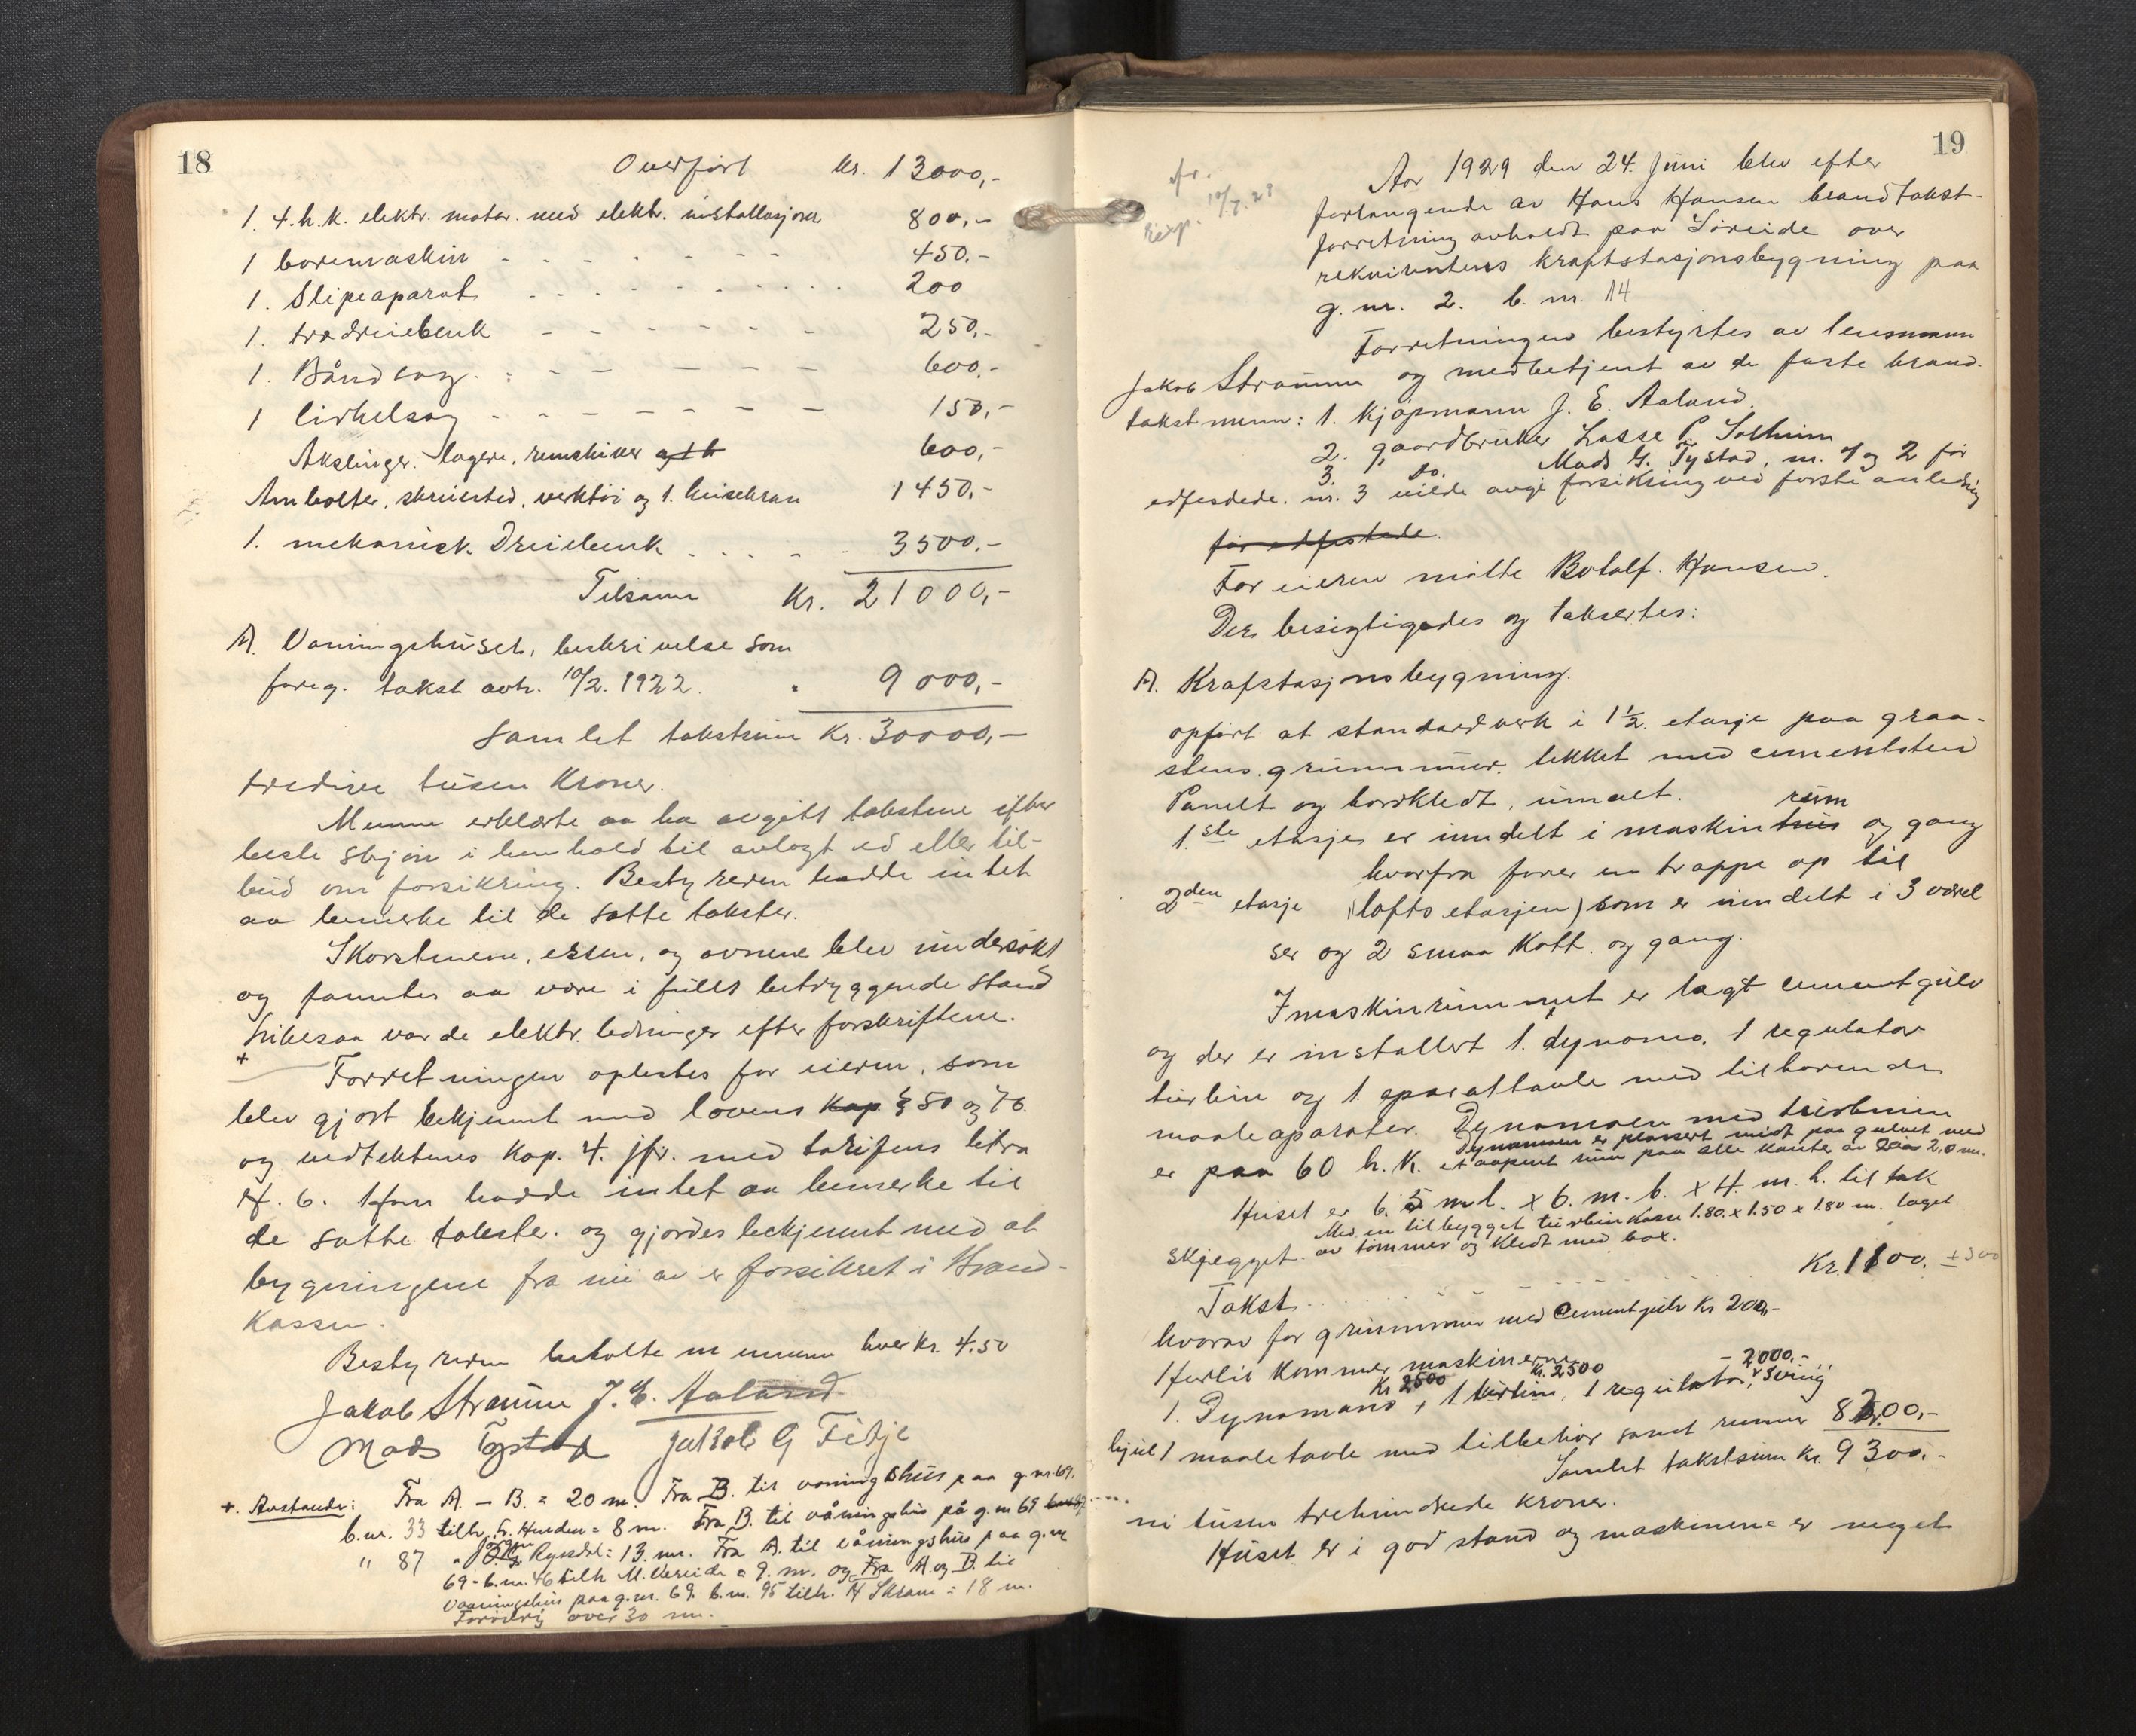 18
Overført Kr. 13000,-
1. 4. h.k. elektr. motor. med elektr. installasjon 800,-
1 boremaskin 450.-
1. Slipeaparat 200
1. tredreiebenk 250,-
1. Båndsag. 600.-
1 Cirkelsag 150,-
Akslinger. lagere, remskiver 600,-
Ambolter, skruested, verktøi og 1. heisekran 1450,-
1. mekanisk. Dreiebenk 3500,-
Tilsamm Kr. 21000,-
A. Vaaningshuset, beskrivelse som
foreg. takst avh. 10/2. 1922. 9000,-
Samlet takstsum Kr. 30000,-
tredive tusen Kroner.
Menne erklærte aa ha avgitt takstene efter
beste skjøn i henhold til avlagt ed eller til-
bud om forsikring. Bestyreren hadde intet
aa bemerke til de satte takster.
Skorstenene, essen, og ovnene blev undersøkt
og fanntes aa være i fullt betryggende stand
likesaa var de elektr. ledninger efter forskriftene.
+
Forretningen oplestes for eieren, som
blev gjort bekjennt med lovens Kap § 50 og 76.
og vedtektenes Kap. 4. jfr. med tarifens litra
H. 6. Han hadde intet aa bemerke til
de satte takster. og gjordes bekjennt med at
bygningene fra nu av er forsikret i Brand-
Kassen.
Bestyreren betalte mennene hver Kr. 4.50
Jakob Straume J. E. Aaland
Mads Tystad Jakob G Fitje
+. Avstander: Fra A. – B. = 20 m. Fra B. til vaaningshus paa g.nr. 69.
b.nr. 33 tilh. Hunden = 8 m. Fra B. til våningshus på g.nr 69
" 87 Jørgen Rygsdal = 13. m. Fra A. til våningshus paa g.nr
69 - b.nr. 46 tilh M. Vereide = 9. m. og Fra A. og B. til
vaaningshus paa g.nr. 69. b.nr. 95 tilh. H Skram = 18 m.
Forøvrig over 30 m.
19
exp. 10/7. 29
Aar 1929 den 24. Juni blev efter
forlangende av Hans Hansen brandtakst-
forretning avholdt paa Søreide over
rekvirentens kraftstasjonsbygning paa
g. nr. 2. b. nr. 14
Forretningen bestyrtes av lensmann
Jakob Straume og medbetjent av de faste brand-
takstmenn: 1. Kjøpmann J. E. Aaland.
2. gaardbruker Lasse P. Solheim
3. do. Mads G. Tystad, nr. 1 og 2 før
edfestede. nr. 3 vilde avgi forsikring ved første anledning
før edfestede.
For eieren møtte Botolf. Hansen.
Der besigtigedes og taksertes:
A. Krafstasjonsbygning.
opført at standardverk i 1½ etasje paa graa-
stens. grunnmur. tekket med cementsten
Panelt og bordkledt, umalt.
rum
1.ste etasje er inndelt i maskinhus og gang
hvorfra fører en trappe op til
2den etasje (loftsetasjen) som er inndelt i 3 værel
ser og 2 smaa Kott. og gang.
I maskinrummet er lagt cementgulv
og der er installert 1. dynamo. 1. regulator
turbin og 1. aparattavle med tilhørende
maaleaparater. Dynamoen med turbinen
Dynamoen er plassert midt paa gulvet med
er paa 60 h. K. et aapent rum paa alle kanter av 2,0 m.
Huset er 6. 5 m l. x 6. m. b. x 4. m. h. til tak
Med en tilbygget turbin Kasse 1.80. x 1.50 x 1.80 m. laget
skjegget. av tømmer og kledt med
Kr. 1100. ± 300
Takst
hvorav for grunnmur med Cementgulv Kr 200,-
Hertil kommer maskinerne
Kr 2500 Kr. 2500 - 2000.-
1. Dynamaro, 1 turbin, 1 regulator, sving
hjul 1 maaletavle med tilbehør samt remmer 8200,-
Samlet takstsum Kr. 9300.-
ni tusen trehundrede kroner.
Huset er i god stand og maskinene er meget